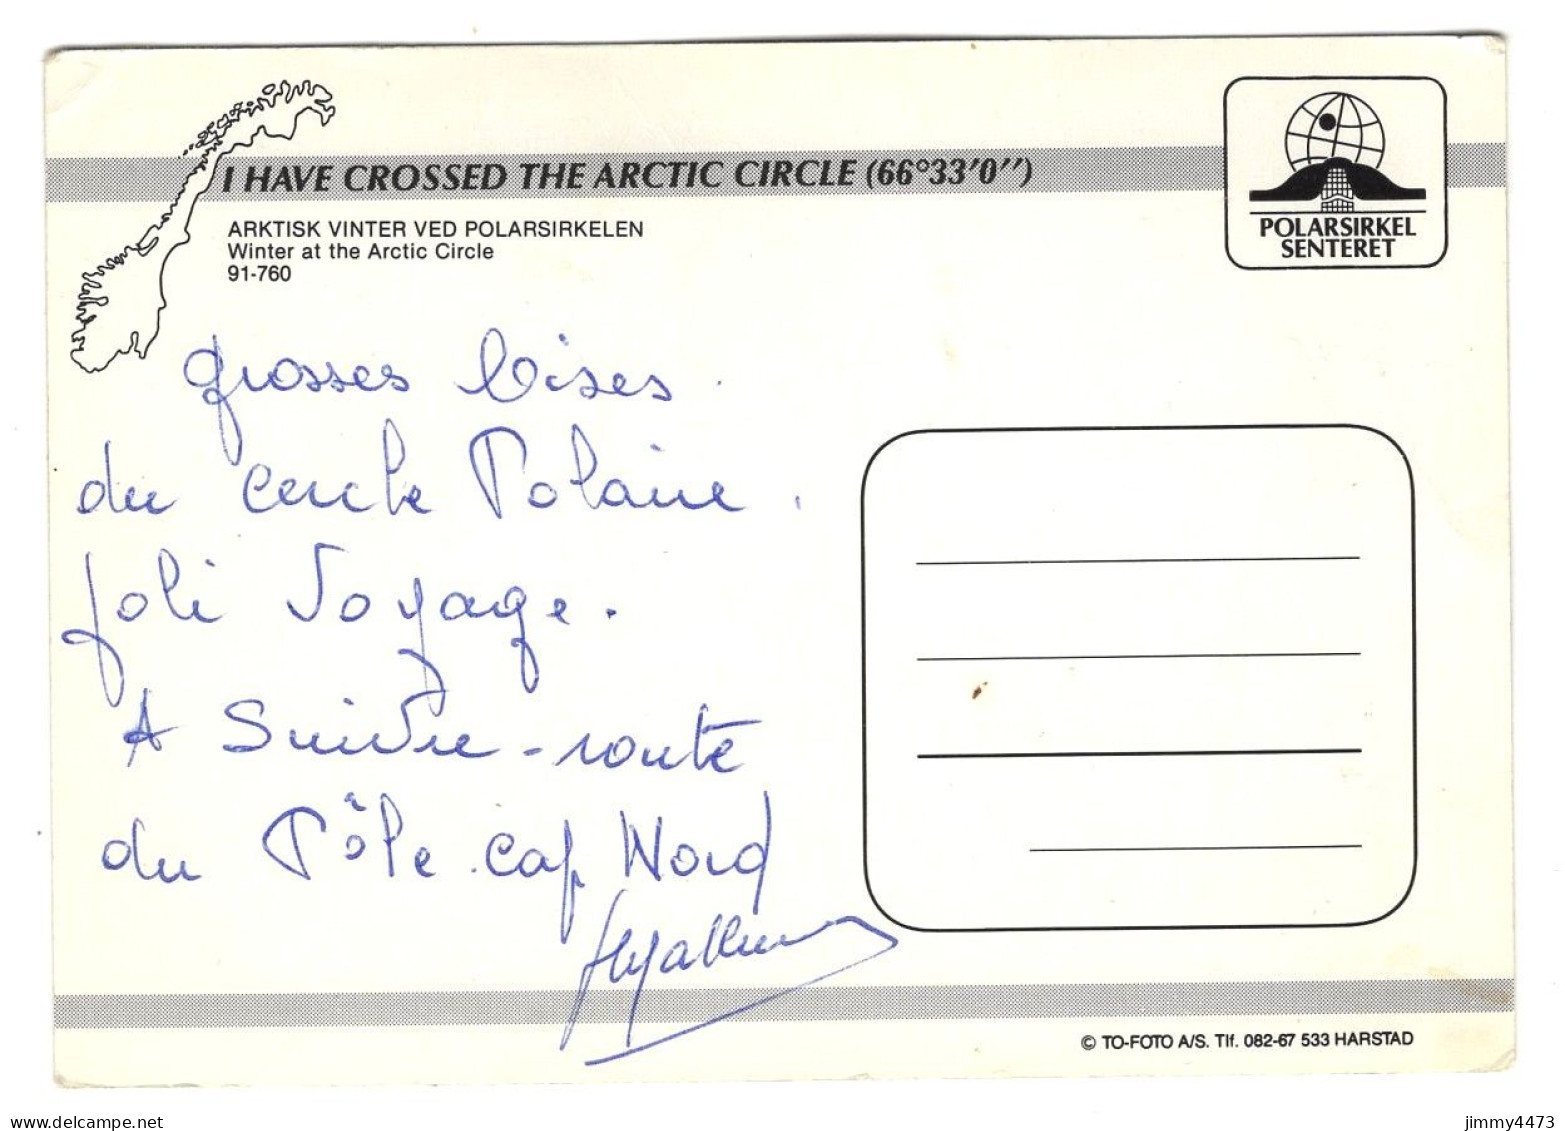 I HAVE CROSSED THE ARCTIC CIRCLE (66°33'0'')
ARKTISK VINTER VED POLARSIRKELEN
Winter at the Arctic Circle
91-760
POLARSIRKEL
SENTERET
grosses bises
du cercle Polaire.
Joli Voyage.
A Suivre - route
du Pôle. cap Nord
© TO-FOTO A/S. Tlf. 082-67 533 HARSTAD
www.delcampe.net
jimmy4473